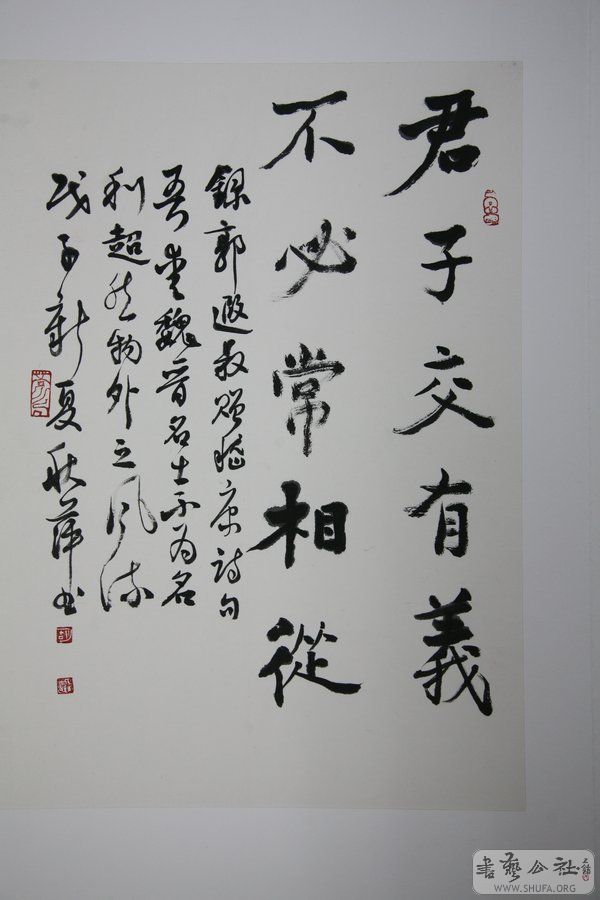 君子交有義
不必常相從
錄郭遐叔贈嵇康詩句
吾愛魏晉名士不為名
利超然物外之風流
戊子新夏秋萍書
書藝公社
WWW.SHUFA.ORG